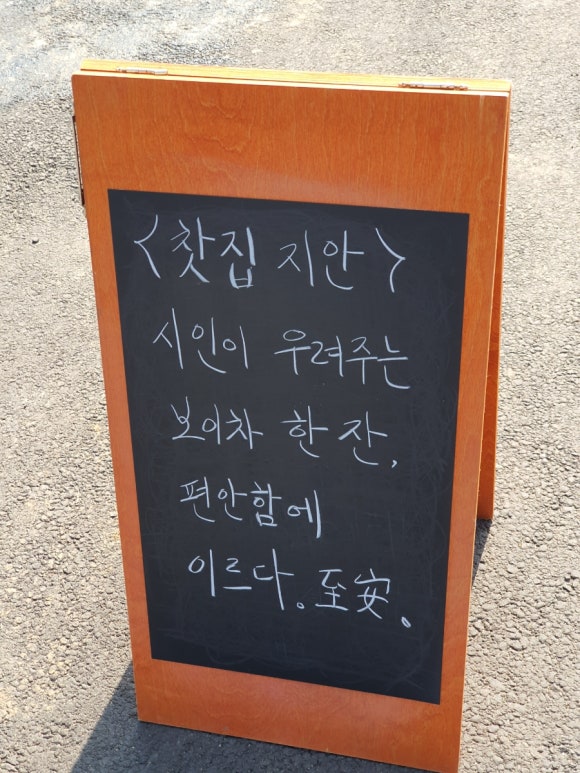 <찻집 지안>
시인이 우려주는
보이차 한 잔,
편안함에
이르다。至安。